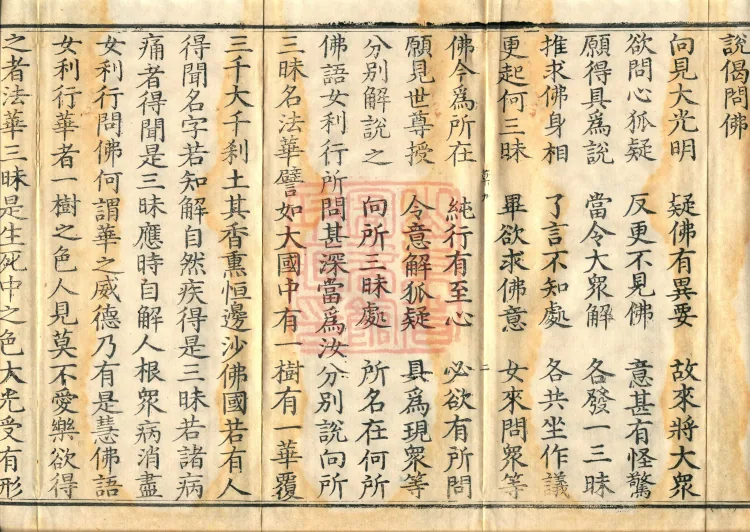 說偈問佛
向見大光明　疑佛有異要　故來將大眾
欲問心狐疑　反更不見佛　意甚有怪驚
願得具為說　當令大眾解　各發一三昧
推求佛身相　了言不知處　各共坐作議
更起何三昧　畢欲求佛意　女來問眾等
佛今為所在　純行有至心　必欲有所問
願見世尊授　令意解狐疑　具為現眾等
分別解說之　向所三昧處　所名在何所
佛語女利行所問甚深當為汝分別說向所
三昧名法華譬如大國中有一樹有一華覆
三千大千剎土其香熏恒邊沙佛國若有人
得聞名字若知解自然疾得是三昧若諸病
痛者得聞是三昧應時自解人根眾病消盡
女利行問佛何謂華之威德乃有是慧佛語
女利行華者一樹之色人見莫不愛樂欲得
之者法華三昧是生死中之色大光受有形